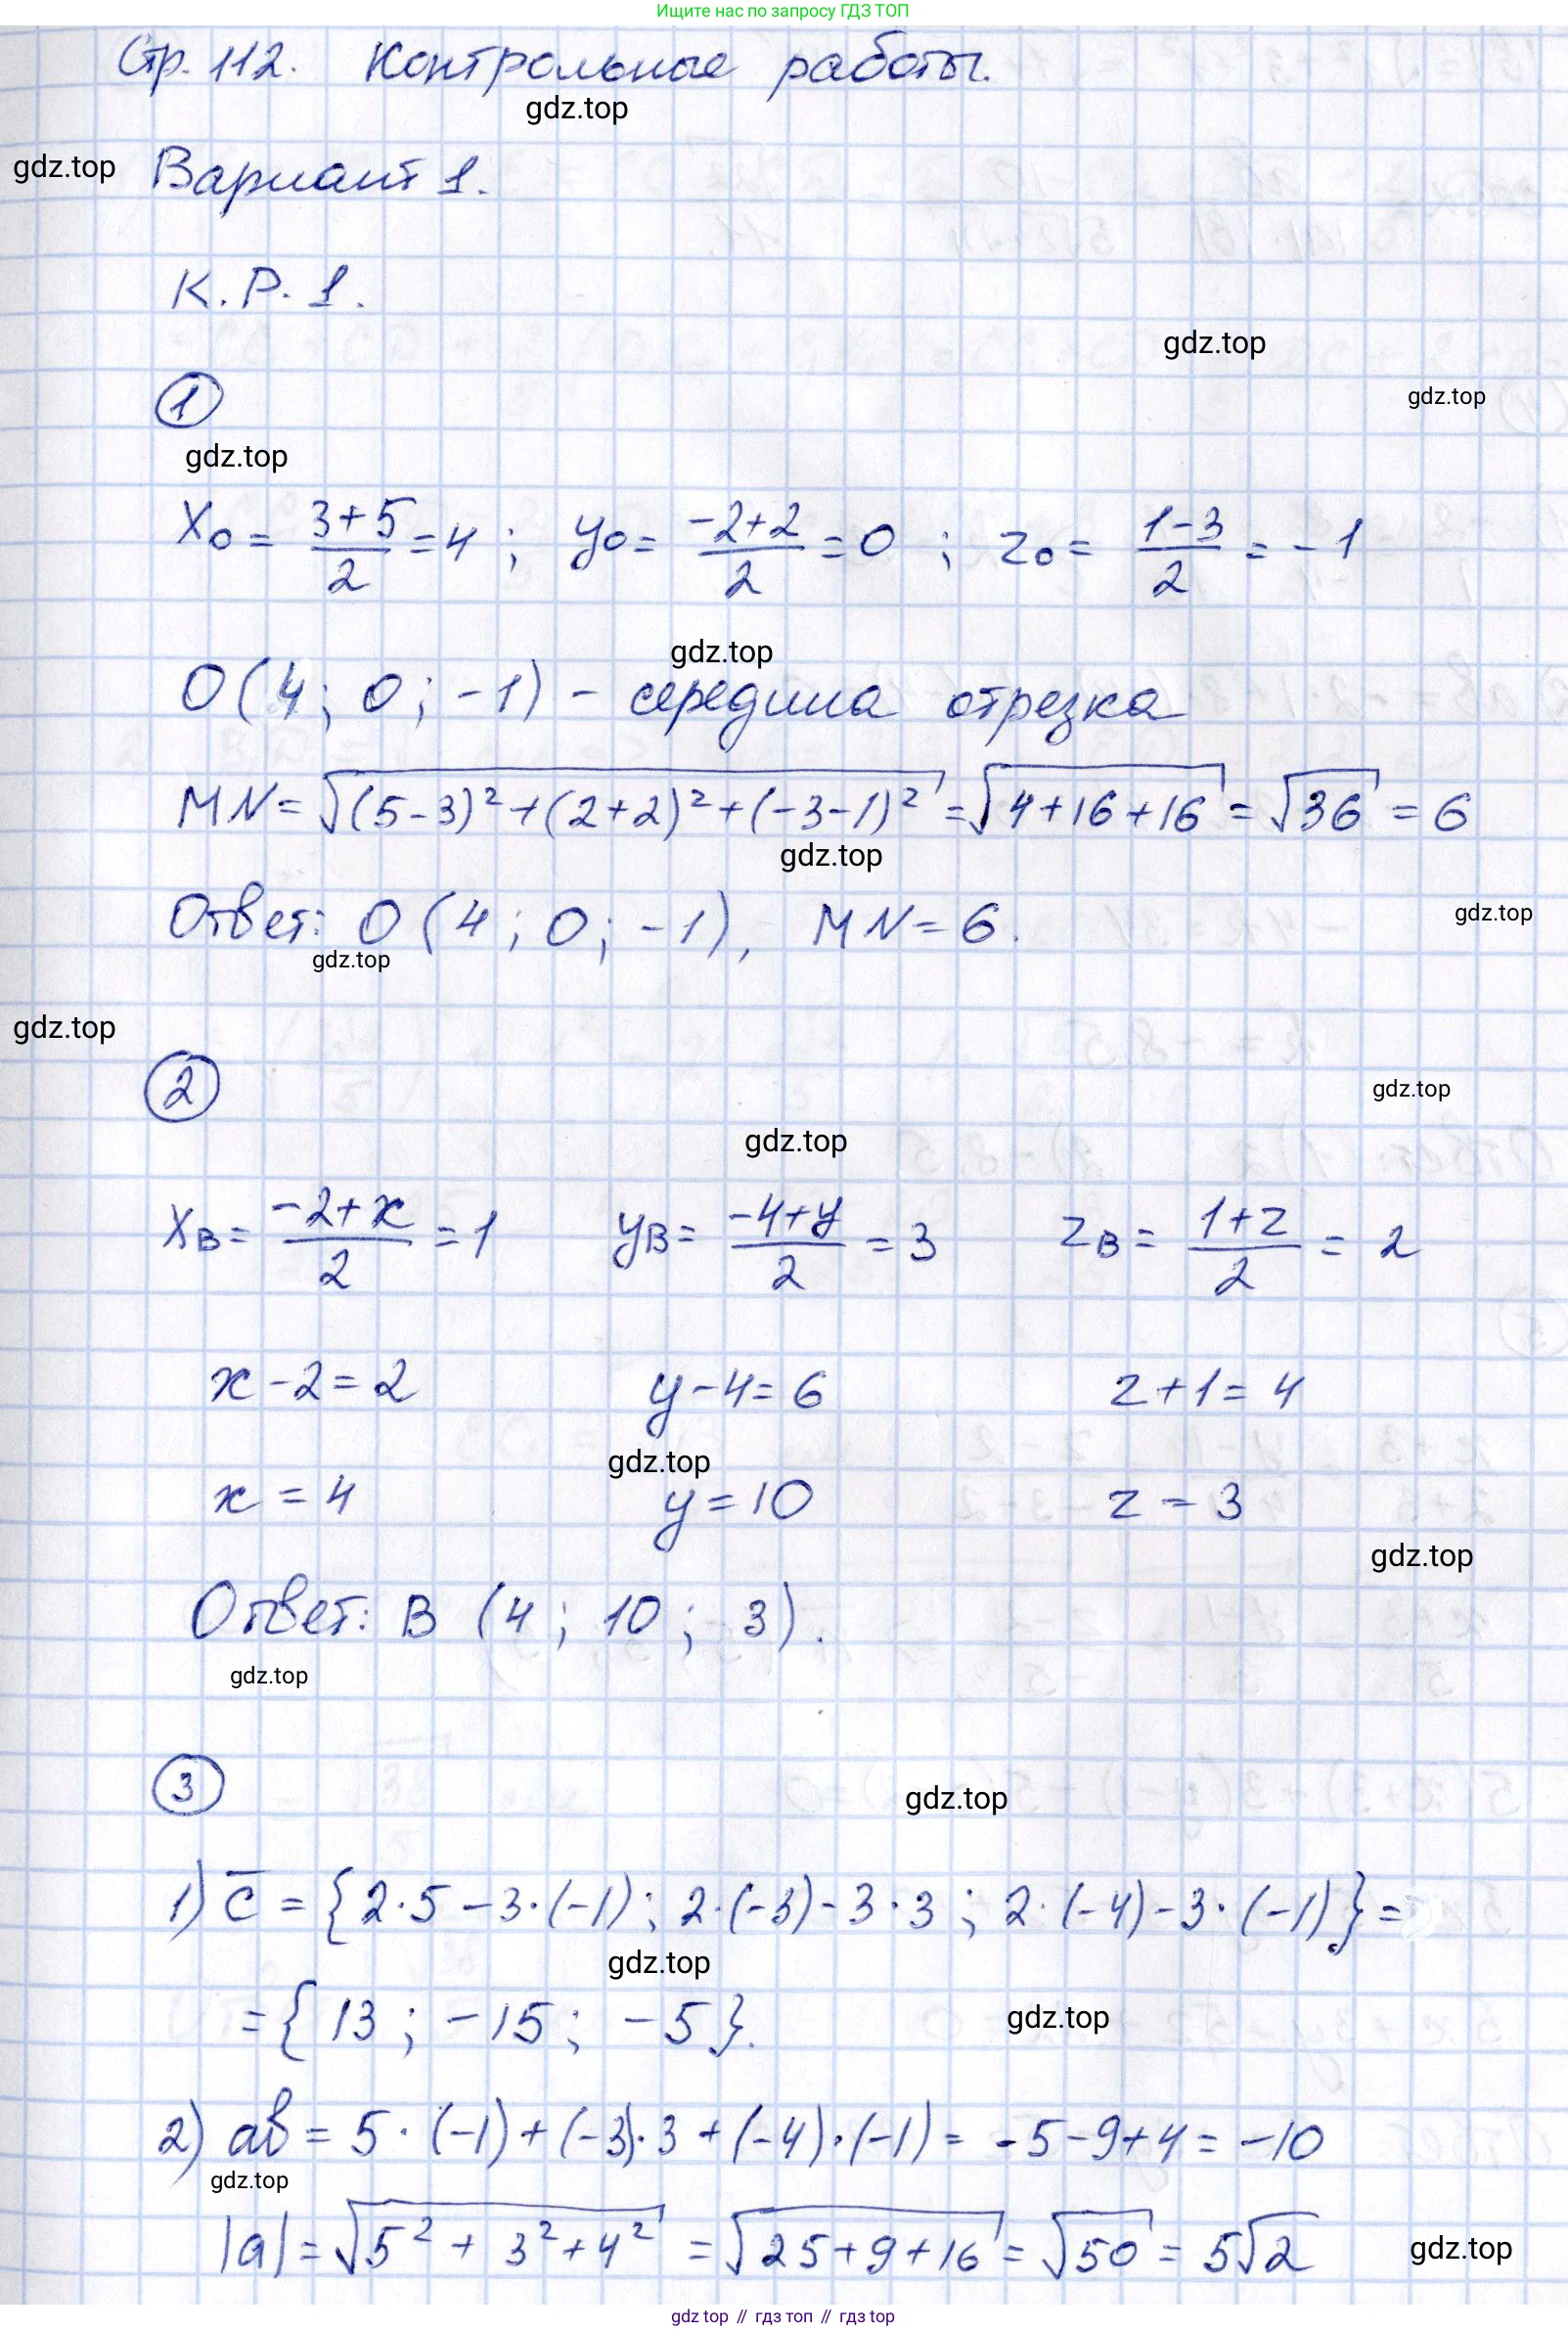 Ищите нас по запросу ГДЗ ТОП
Стр. 112. Контрольные работы.
gdz.top
gdz.top
Вариант 1.
К.Р. 1.
gdz.top
1
gdz.top
gdz.top
x₀ = (3+5)/2 = 4 ; y₀ = (-2+2)/2 = 0 ; z₀ = (1-3)/2 = -1
gdz.top
O(4; 0; -1) - середина отрезка
MN = √((5-3)² + (2+2)² + (-3-1)²) = √(4+16+16) = √36 = 6
gdz.top
Ответ: O(4; 0; -1), MN = 6.
gdz.top
gdz.top
gdz.top
2
gdz.top
gdz.top
xB = (-2+x)/2 = 1 yB = (-4+y)/2 = 3 zB = (1+z)/2 = 2
x-2=2 y-4=6 z+1=4
gdz.top
x=4 y=10 z=3
gdz.top
Ответ: B (4; 10; 3).
gdz.top
3
gdz.top
1) c̅ = {2·5-3·(-1); 2·(-3)-3·3; 2·(-4)-3·(-1)} =
gdz.top
= {13; -15; -5}.
gdz.top
2) ab = 5·(-1)+(-3)·3+(-4)·(-1) = -5-9+4 = -10
gdz.top
|a| = √(5²+3²+4²) = √(25+9+16) = √50 = 5√2
gdz.top
gdz top // гдз топ // гдз top